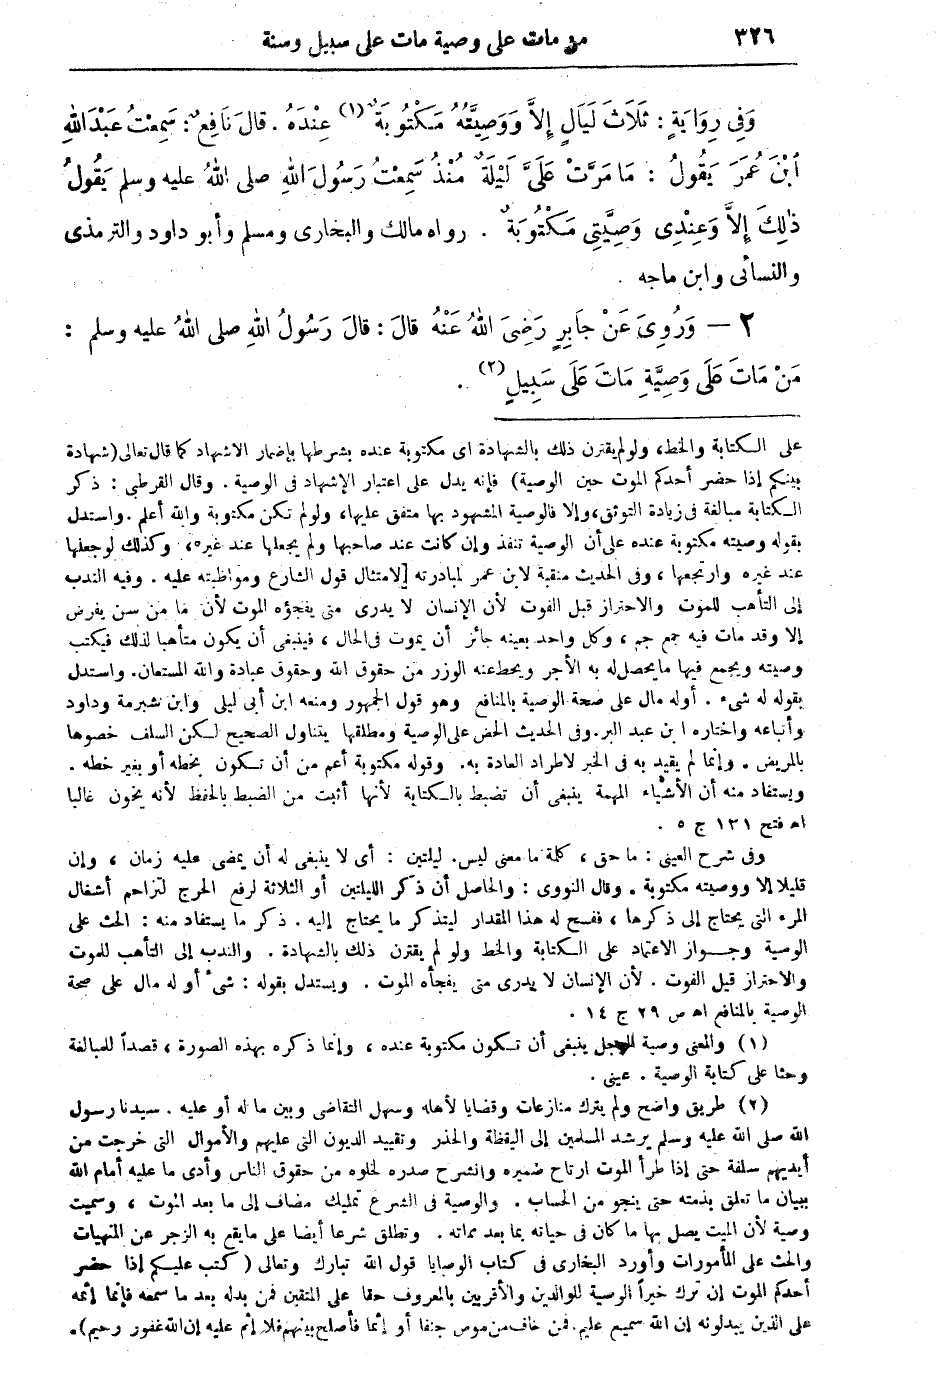 ٣٢٦ من مات على وصية مات على سبيل وسنة
وَفِي رِوَايَةٍ : ثَلَاثَ لَيَالٍ إِلاَّ وَوَصِيَّتُهُ مَكْتُوبَةٌ (١) عِنْدَهُ . قالَ نَافِعٌ : سَمِعْتُ عَبْدَ اللهِ
ابْنَ عُمَرَ يَقُولُ : مَا مَرَّتْ عَلَىَّ لَيْلَةٌ مُنْذُ سَمِعْتُ رَسُولَ اللهِ صلى اللهُ عليه وسلم يَقُولُ
ذٰلِكَ إِلاَّ وَعِنْدِى وَصِيَّتِى مَكْتُوبَةٌ . رواه مالك والبخارى ومسلم وأبو داود والترمذى
والنسائى وابن ماجه .
٢ — وَرُوِىَ عَنْ جَابِرٍ رَضِىَ اللهُ عَنْهُ قالَ : قالَ رَسُولُ اللهِ صلى اللهُ عليه وسلم :
مَنْ مَاتَ عَلَى وَصِيَّةٍ مَاتَ عَلَى سَبِيلٍ (٢) .
على الكتابة والخط، ولو لم يقترن ذلك بالشهادة اى مكتوبة عنده بشرطها بإضمار الاشهاد كما قال تعالى (شهادة
بينكم إذا حضر أحدكم الموت حين الوصية) فإنه يدل على اعتبار الإشهاد فى الوصية . وقال القرطبى : ذكر
الكتابة مبالغة فى زيادة التوثق، وإلا فالوصية المشهود بها متفق عليها، ولو لم تكن مكتوبة والله أعلم . واستدل
بقوله وصيته مكتوبة عنده على أن الوصية تنفذ وإن كانت عند صاحبها ولم يجعلها عند غيره، وكذلك لو جعلها
عند غيره وارتجعها ، وفى الحديث منقبة لابن عمر لمبادرته لامتثال قول الشارع ومواظبته عليه . وفيه الندب
إلى التأهب للموت والاحتراز قبل الفوت لأن الإنسان لا يدرى متى يفجؤه الموت لأن ما من سن يفرض
إلا وقد مات فيه جمع جم ، وكل واحد بعينه جائز أن يموت فى الحال ، فينبغى أن يكون متأهبا لذلك فيكتب
وصيته ويجمع فيها ما يحصل له به الأجر ويحط عنه الوزر من حقوق الله وحقوق عبادة والله المستعان. واستدل
بقوله له شىء . أوله مال على صحة الوصية بالمنافع وهو قول الجمهور ومنعه ابن أبى ليلى وابن شبرمة وداود
وأتباعه واختاره ابن عبد البر. وفى الحديث الحض على الوصية ومطلقها يتناول الصحيح لكن السلف خصوها
بالمريض . وإنما لم يقيد به فى الخبر لاطراد العادة به. وقوله مكتوبة أعم من أن تكون بخطه أو بغير خطه .
ويستفاد منه أن الأشياء المهمة ينبغى أن تضبط بالكتابة لأنها أثبت من الضبط بالحفظ لأنه يخون غالبا
اه فتح ١٣١ ج ٥ .
وفى شرح العينى : ما حق ، كلمة ما معنى ليس. ليلتين : أى لا ينبغى له أن يمضى عليه زمان ، وإن
قليلا إلا ووصيته مكتوبة . وقال النووى : والحاصل أن ذكر الليلتين أو الثلاثة لرفع الحرج لتزاحم أشغال
المرء التى يحتاج إلى ذكرها ، ففسح له هذا المقدار ليتذكر ما يحتاج إليه . ذكر ما يستفاد منه : الحث على
الوصية وجواز الاعتماد على الكتابة والخط ولو لم يقترن ذلك بالشهادة . والندب إلى التأهب للموت
والاحتراز قبل الفوت . لأن الإنسان لا يدرى متى يفجأه الموت . ويستدل بقوله : شىء أو له مال على صحة
الوصية بالمنافع اه ص ٢٩ ج ١٤ .
(١) والمعنى وصية الرجل ينبغى أن تكون مكتوبة عنده ، وإنما ذكره بهذه الصورة ، قصداً للمبالغة
وحثا على كتابة الوصية . عينى .
(٢) طريق واضح ولم يترك منازعات وقضايا لأهله وسهل التقاضى وبين ما له أو عليه . سيدنا رسول
الله صلى الله عليه وسلم يرشد المسلمين إلى اليقظة والحذر وتقييد الديون التى عليهم والأموال التى خرجت من
أيديهم سلفة حتى إذا طرأ الموت ارتاح ضميره وانشرح صدره لخلوه من حقوق الناس وأدى ما عليه أمام الله
ببيان ما تعلق بذمته حتى ينجو من الحساب . والوصية فى الشرع تمليك مضاف إلى ما بعد الموت ، وسميت
وصية لأن الميت يصل بها ما كان فى حياته بما بعد مماته . وتطلق شرعا أيضا على ما يقع به الزجر عن المنهيات
والحث على المأمورات وأورد البخارى فى كتاب الوصايا قول الله تبارك وتعالى ( كتب عليكم إذا حضر
أحدكم الموت إن ترك خيراً الوصية للوالدين والأقربين بالمعروف حقا على المتقين فمن بدله بعد ما سمعه فإنما إثمه
على الذين يبدلونه إن الله سميع عليم. فمن خاف من موص جنفا أو إثما فأصلح بينهم فلا إثم عليه إن الله غفور رحيم).